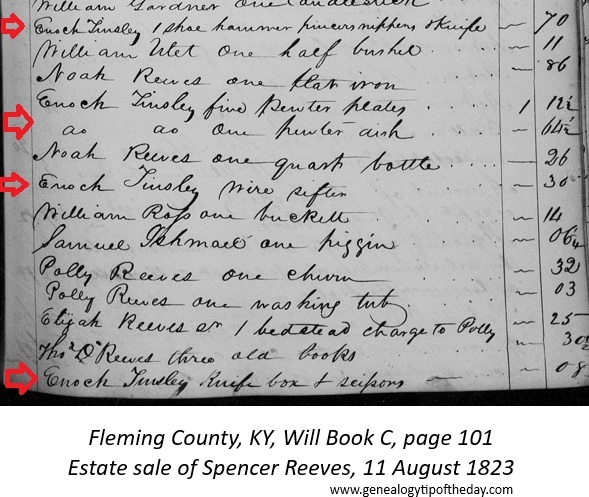 William Gardner one Candlestick
Enoch Tinsley 1 shoe hammer pincers nippers & Knife — 70
William Utet one half bushel — 11
Noah Reeves one flat iron — 86
Enoch Tinsley five pewter plates 1 12½
do do one pewter dish — 64½
Noah Reeves one quart bottle — 26
Enoch Tinsley wire sifter — 30
William Ross one buckett — 14
Samuel Ishmael one piggin — 06¼
Polly Reeves one churn — 32
Polly Reeves one washing tub — 03
Elijah Reeves sr 1 bedstead charge to Polly — 25
Thos D Reeves three old books — 30
Enoch Tinsley Knife box & scissors — 08
Fleming County, KY, Will Book C, page 101
Estate sale of Spencer Reeves, 11 August 1823
www.genealogytipoftheday.com